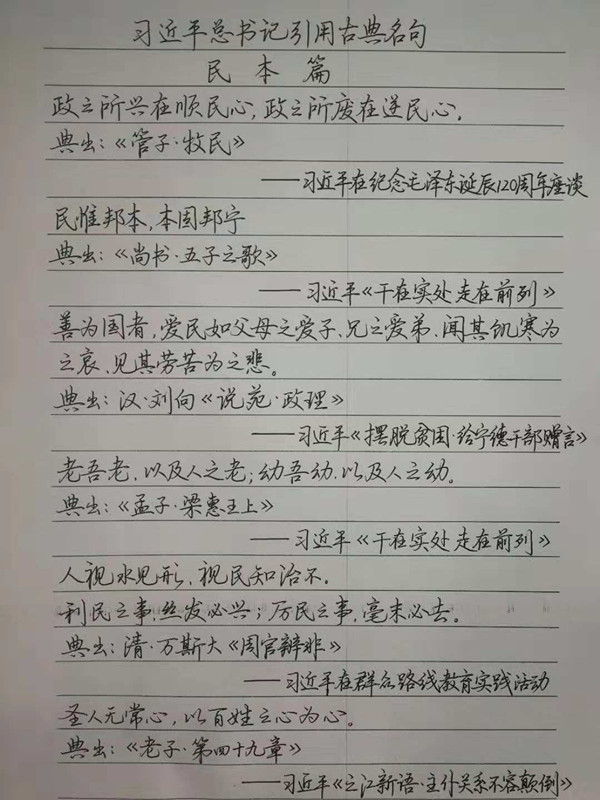 习近平总书记引用古典名句
民本篇
政之所兴在顺民心,政之所废在逆民心。
典出:《管子·牧民》
——习近平在纪念毛泽东诞辰120周年座谈
民惟邦本,本固邦宁
典出:《尚书·五子之歌》
——习近平《干在实处 走在前列》
善为国者,爱民如父母之爱子、兄之爱弟、闻其饥寒为
之哀、见其劳苦为之悲。
典出:汉·刘向《说苑·政理》
——习近平《摆脱贫困·给宁德干部赠言》
老吾老,以及人之老;幼吾幼,以及人之幼。
典出:《孟子·梁惠王上》
——习近平《干在实处 走在前列》
人视水见形,视民知治不。
利民之事,丝发必兴;厉民之事,毫末必去。
典出:清·万斯大《周官辨非》
——习近平在群众路线教育实践活动
圣人无常心,以百姓之心为心。
典出:《老子·第四十九章》
——习近平《之江新语·主仆关系不容颠倒》